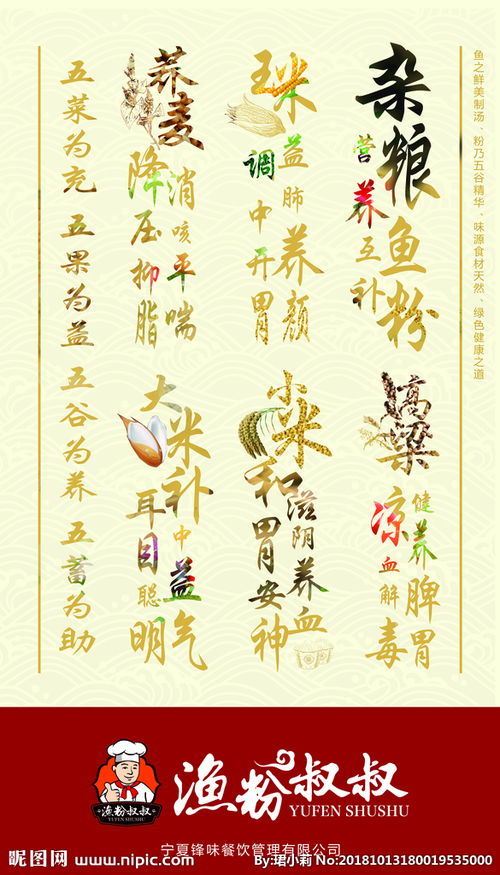 鱼之鲜美制汤、粉乃五谷精华、味源食材天然、绿色健康之道
杂粮鱼粉
营养互补
玉米
益肺养颜
调中开胃
荞麦
消咳平喘
降压抑脂
高粱
健养脾胃
凉血解毒
小米
滋阴养血
和胃安神
大米
补中益气
耳目聪明
五菜为充 五果为益 五谷为养 五蓄为助
渔粉叔叔
YUFEN SHUSHU
渔粉叔叔
YUFEN SHUSHU
宁夏锋味餐饮管理有限公司
昵图网 www.nipic.com
By:珺小莉 No:20181013180019535000